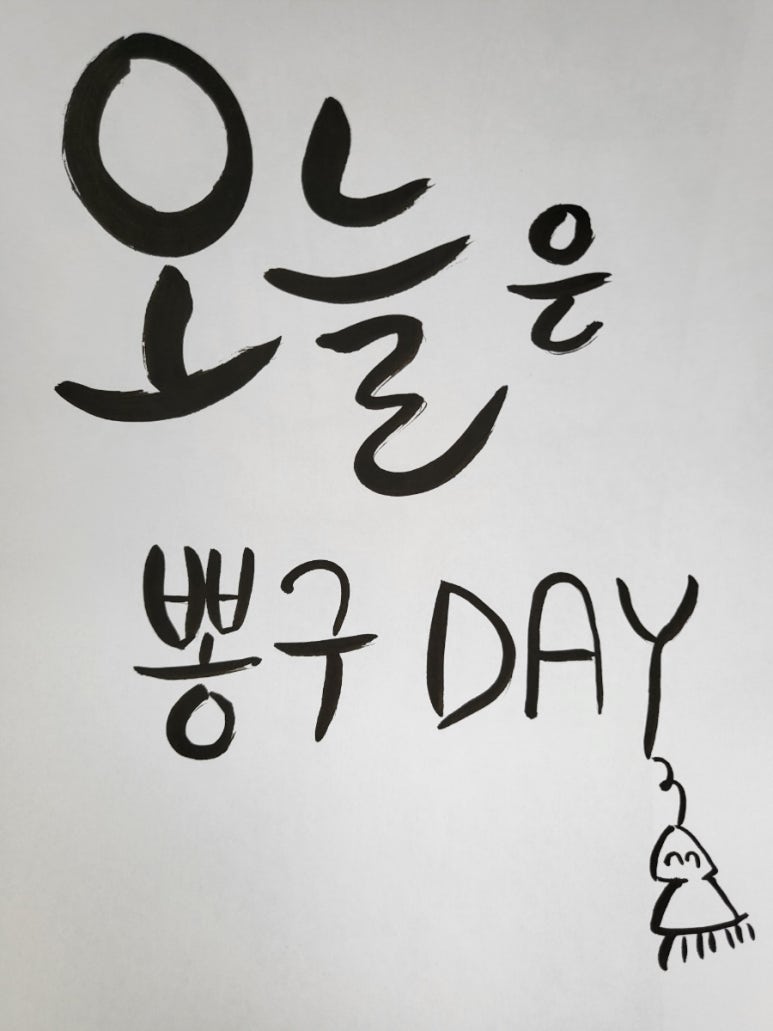 오늘은
뽕구 DAY